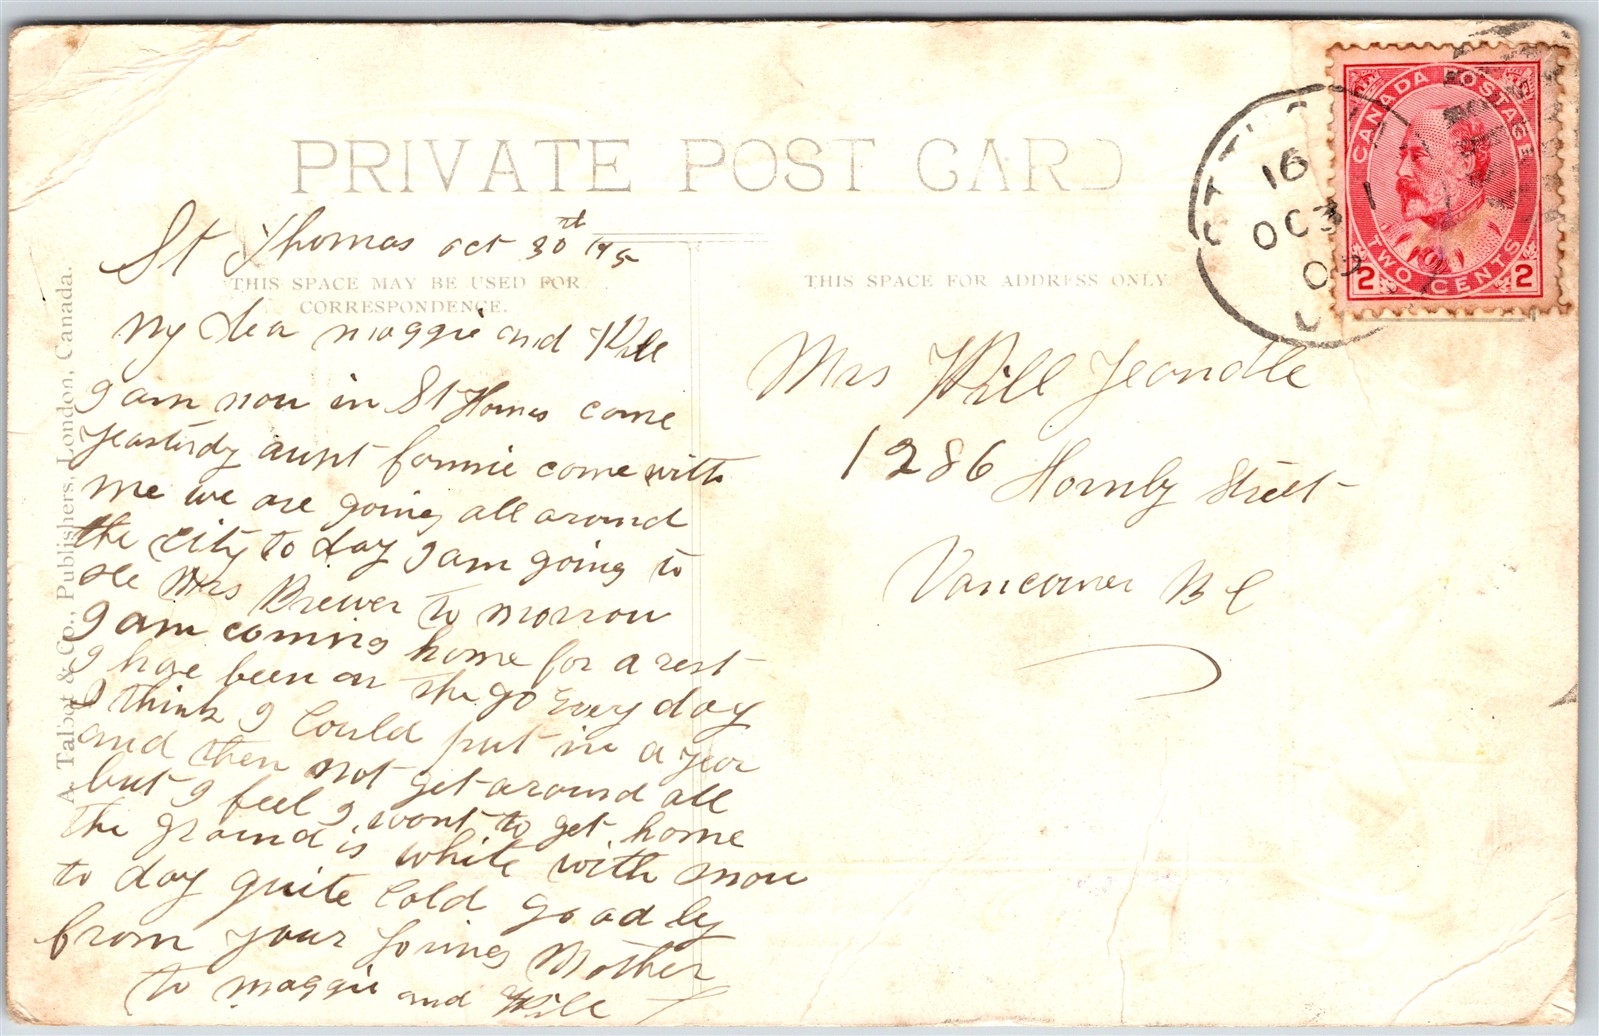 PRIVATE POST CARD
St Thomas Oct 30th
THIS SPACE MAY BE USED FOR
CORRESPONDENCE.
THIS SPACE FOR ADDRESS ONLY
My dea maggie and Will
I am now in St Homas came
yeasterdy aunt fannie come with
me we are going all around
the city to day I am going to
see Mrs Brewer to morrow
I am coming home for a rest
I have been on the go Every day
I think I could put in a year
and then not get around all
but I feel I want to get home
the ground is white with snow
to day quite Cold Good by
from your loving Mother
to maggie and Will
Mrs Will Jeandle
1286 Hornby Street
Vancouver B C
A. Talbot & Co., Publishers, London, Canada.
CANADA POSTAGE
2 TWO CENTS 2
16
OC 31